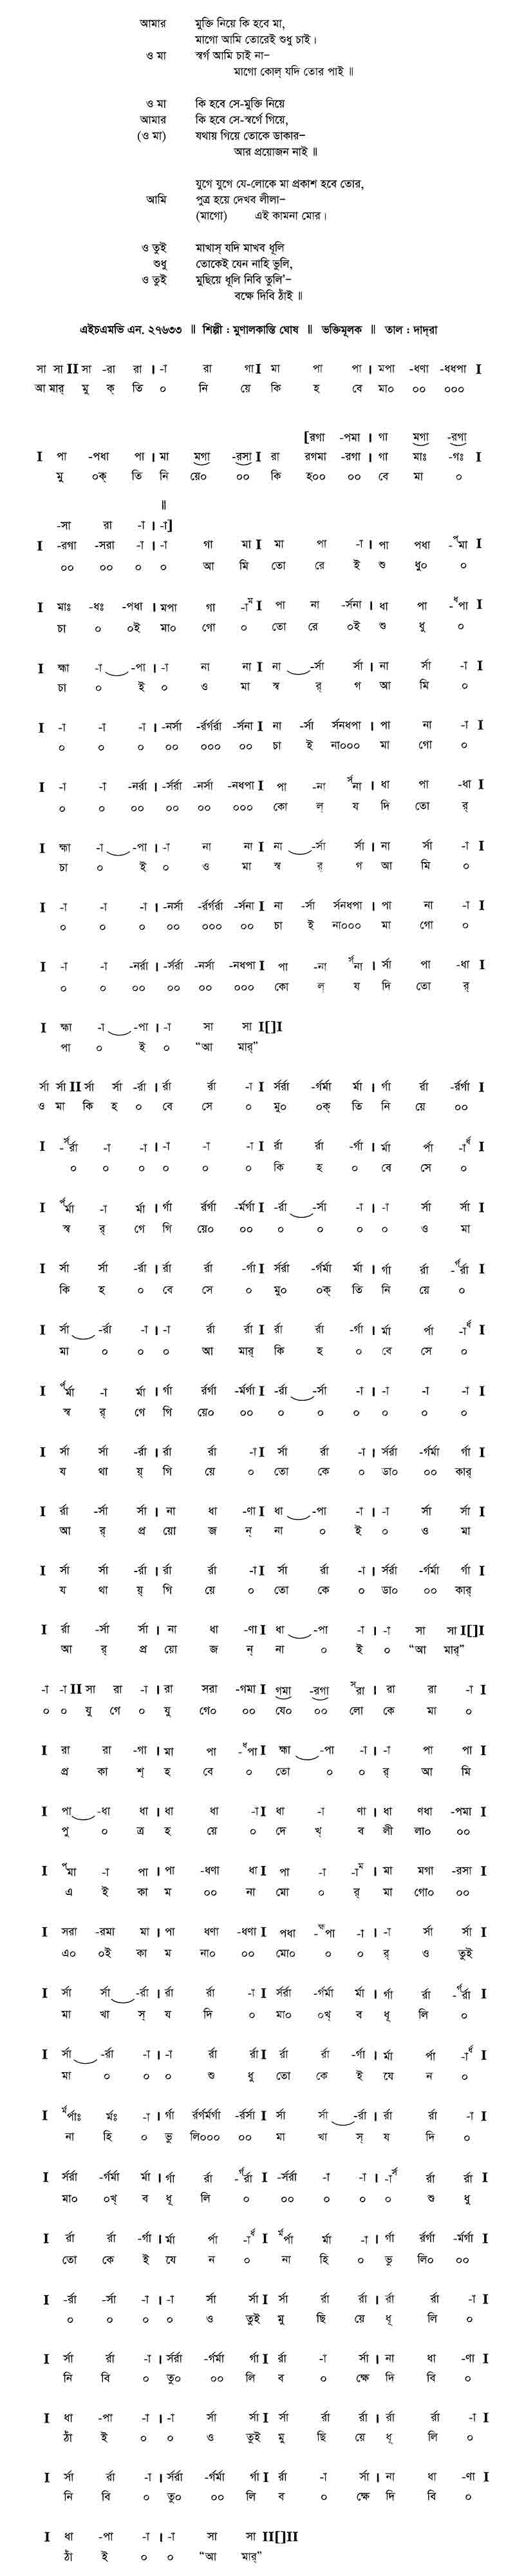 আমার মুক্তি নিয়ে কি হবে মা,
মাগো আমি তোরেই শুধু চাই।
ও মা স্বর্গ আমি চাই না–
মাগো কোল্ যদি তোর পাই ॥
ও মা কি হবে সে-মুক্তি নিয়ে
আমার কি হবে সে-স্বর্গে গিয়ে,
(ও মা) যথায় গিয়ে তোকে ডাকার–
আর প্রয়োজন নাই ॥
যুগে যুগে যে-লোকে মা প্রকাশ হবে তোর,
আমি পুত্র হয়ে দেখব লীলা–
(মাগো) এই কামনা মোর।
ও তুই মাখাস্ যদি মাখব ধূলি
শুধু তোকেই যেন নাহি ভুলি,
ও তুই মুছিয়ে ধূলি নিবি তুলি'–
বক্ষে দিবি ঠাঁই ॥
এইচএমভি এন. ২৭৬৩৩ ॥ শিল্পী : মৃণালকান্তি ঘোষ ॥ ভক্তিমূলক ॥ তাল : দাদ্‌রা
সা সা II সা -রা রা । -া রা গা I মা পা পা । মপা -ধণা -ধধপা I
আ মার্ মু ক্ তি ০ নি য়ে কি হ বে মা০ ০০ ০০০
[রগা -পমা । গা মগা -রগা
I পা -পধা পা । মা মগা -রসা I রা রগমা -রগা । গা মাঃ -গঃ I
মু ০ক্ তি নি য়ে০ ০০ কি হ০০ ০০ বে মা ০
॥
-সা রা -া । -া]
I -রগা -সরা -া । -া গা মা I মা পা -া । পা পধা -পমা I
০০ ০০ ০ ০ আ মি তো রে ই শু ধু০ ০
I মাঃ -ধঃ -পধা । মপা গা -াম I পা না -র্সনা । ধা পা -ধপা I
চা ০ ০ই মা০ গো ০ তো রে ০ই শু ধু ০
I হ্মা -া -পা । -া না না I না -র্সা র্সা । না র্সা -া I
চা ০ ই ০ ও মা স্ব র্ গ আ মি ০
I -া -া -া । -নর্সা -র্রর্গর্রা -র্সনা I না -র্সা র্সনধপা । পা না -া I
০ ০ ০ ০০ ০০০ ০০ চা ই না০০০ মা গো ০
I -া -া -নর্রা । -র্সর্রা -নর্সা -নধপা I পা -না র্সনা । ধা পা -ধা I
০ ০ ০০ ০০ ০০ ০০০ কো ল্ য দি তো র্
I হ্মা -া -পা । -া না না I না -র্সা র্সা । না র্সা -া I
চা ০ ই ০ ও মা স্ব র্ গ আ মি ০
I -া -া -া । -নর্সা -র্রর্গর্রা -র্সনা I না -র্সা র্সনধপা । পা না -া I
০ ০ ০ ০০ ০০০ ০০ চা ই না০০০ মা গো ০
I -া -া -নর্রা । -র্সর্রা -নর্সা -নধপা I পা -না র্সনা । র্সা পা -ধা I
০ ০ ০০ ০০ ০০ ০০০ কো ল্ য দি তো র্
I হ্মা -া -পা । -া সা সা I[]I
পা ০ ই ০ “আ মার্”
র্সা র্সা II র্সা র্সা -র্রা । র্রা র্রা -া I র্সর্রা -র্গর্মা র্মা । র্গা র্রা -র্রর্গা I
ও মা কি হ ০ বে সে ০ মু০ ০ক্ তি নি য়ে ০০
I -র্সর্রা -া -া । -া -া -া I র্রা র্রা -র্গা । র্মা র্পা -ার্ধ I
০ ০ ০ ০ ০ ০ কি হ ০ বে সে ০
I র্পর্মা -া র্মা । র্গা র্রর্গা -র্মর্গা I -র্রা -র্সা -া । -া র্সা র্সা I
স্ব র্ গে গি য়ে০ ০০ ০ ০ ০ ০ ও মা
I র্সা র্সা -র্রা । র্রা র্রা -র্গা I র্সর্রা -র্গর্মা র্মা । র্গা র্রা -র্গর্রা I
কি হ ০ বে সে ০ মু০ ০ক্ তি নি য়ে ০
I র্সা -র্রা -া । -া র্রা র্রা I র্রা র্রা -র্গা । র্মা র্পা -ার্ধ I
মা ০ ০ ০ আ মার্ কি হ ০ বে সে ০
I র্পর্মা -া র্মা । র্গা র্রর্গা -র্মর্গা I -র্রা -র্সা -া । -া -া -া I
স্ব র্ গে গি য়ে০ ০০ ০ ০ ০ ০ ০ ০
I র্সা র্সা -র্রা । র্রা র্রা -া I র্সা র্রা -া । র্সর্রা -র্গর্মা র্গা I
য থায় ্ গি য়ে ০ তো কে ০ ডা০ ০০ কার্
I র্রা -র্সা র্সা । না ধা -ণা I ধা -পা -া । -া র্সা র্সা I
আ র্ প্র য়ো জ ন্ না ০ ই ০ ও মা
I র্সা র্সা -র্রা । র্রা র্রা -া I র্সা র্রা -া । র্সর্রা -র্গর্মা র্গা I
য থা য়্ গি য়ে ০ তো কে ০ ডা০ ০০ কার্
I র্রা -র্সা র্সা । না ধা -ণা I ধা -পা -া । -া সা সা I[]I
আ র্ প্র য়ো জ ন্ না ০ ই ০ “আ মার্”
-া -া II সা রা -া । রা সরা -গমা I গমা -রগা সরা । রা রা -া I
০ ০ যু গে ০ যু গে০ ০০ যে০ ০০ লো কে মা ০
I রা রা -গা । মা পা -ধপা I হ্মা -পা -া । -া পা পা I
প্র কা শ্ হ বে ০ তো ০ ০ র্ আ মি
I পা -ধা ধা । ধা ধা -া I ধা -া ণা । ধা ণধা -পমা I
পু ০ ত্র হ য়ে ০ দে খ্ ব লী লা০ ০০
I পমা -া পা । পা -ধণা ধা I পা -া -াম । মা মগা -রসা I
এ ই কা ম ০০ না মো ০ র্ মা গো০ ০০
I সরা -রমা মা । পা ধণা -ধণা I পধা -হ্মপা -া । -া র্সা র্সা I
এ০ ০ই কা ম না০ ০০ মো০ ০ ০ র্ ও তুই
I র্সা র্সা -র্রা । র্রা র্রা -া I র্সর্রা -র্গর্মা র্মা । র্গা র্রা -র্গর্রা I
মা খা স্ য দি ০ মা০ ০খ্ ব ধূ লি ০
I র্সা -র্রা -া । -া র্রা র্রা I র্রা র্রা -র্গা । র্মা র্পা -ার্ধ I
মা ০ ০ ০ শু ধু তো কে ই যে ন ০
I র্মর্পাঃ র্মঃ -া । র্গা র্রর্গর্মর্গা -র্রর্সা I র্সা র্সা -র্রা । র্রা র্রা -া I
না হি ০ ভু লি০০০ ০০ মা খা স্ য দি ০
I র্সর্রা -র্গর্মা র্মা । র্গা র্রা -র্গর্রা I -র্সর্রা -া -া । -ার্স র্রা র্রা I
মা০ ০খ্ ব ধূ লি ০ ০০ ০ ০ ০ শু ধু
I র্রা র্রা -র্গা । র্মা র্পা -ার্ধ I র্মর্পা র্মা -া । র্গা র্রর্গা -র্মর্গা I
তো কে ই যে ন ০ না হি ০ ভু লি০ ০০
I -র্রা -র্সা -া । -া র্সা র্সা I র্সা র্রা র্রা । র্রা র্রা -া I
০ ০ ০ ০ ও তুই মু ছি য়ে ধূ লি ০
I র্সা র্রা -া । র্সর্রা -র্গর্মা র্গা I র্রা -া র্সা । না ধা -ণা I
নি বি ০ তু০ ০০ লি ব ০ ক্ষে দি বি ০
I ধা -পা -া । -া র্সা র্সা I র্সা র্রা র্রা । র্রা র্রা -া I
ঠাঁ ই ০ ০ ও তুই মু ছি য়ে ধূ লি ০
I র্সা র্রা -া । র্সর্রা -র্গর্মা র্গা I র্রা -া র্সা । না ধা -ণা I
নি বি ০ তু০ ০০ লি ব ০ ক্ষে দি বি ০
I ধা -পা -া । -া সা সা II[]II
ঠাঁ ই ০ ০ “আ মার্”